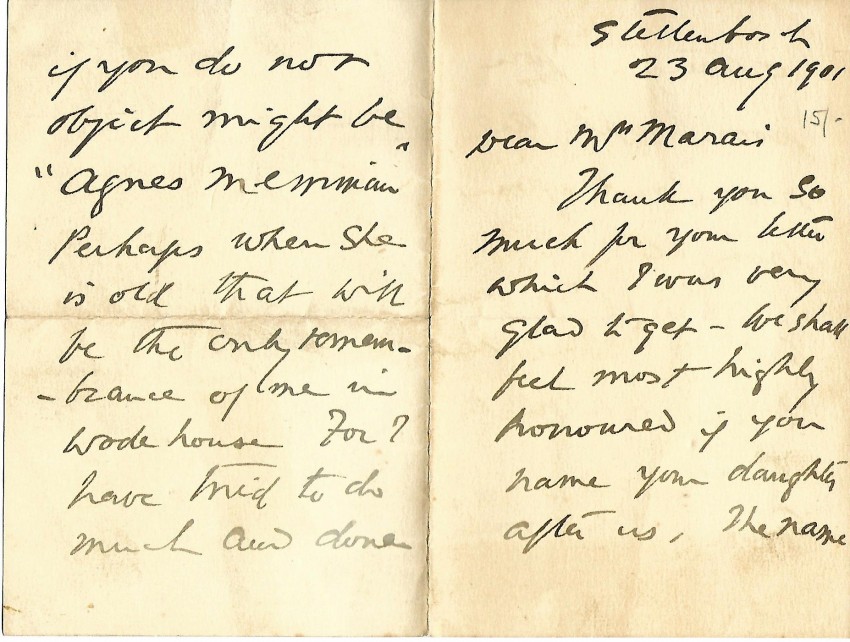 Stellenbosch
23 Aug 1901
15/-
Dear Mrs Marais
Thank you so
much for your letter
which I was very
glad to get - We shall
feel most highly
honoured if you
name your daughter
after us, The name
if you do not
object might be
"Agnes Merriman"
Perhaps when She
is old that will
be the only remem-
-brance of me in
Wodehouse For I
have tried to do
much and done